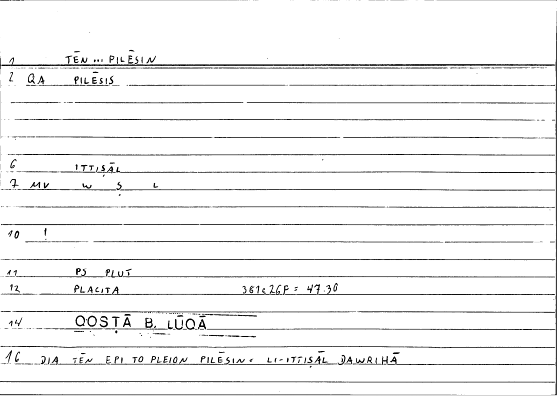 1 TĒN ... PILĒSIN
2 QA PILĒSIS
6 ITTIṢĀL
7 MV W Ṣ L
10 !
11 PS PLUT
12 PLACITA 381c26F = 47.30
14 QOSṬĀ B. LŪQĀ
16 DIA TĒN EPI TO PLEION PILĒSIN = LI-ITTIṢĀL DAWRIHĀ